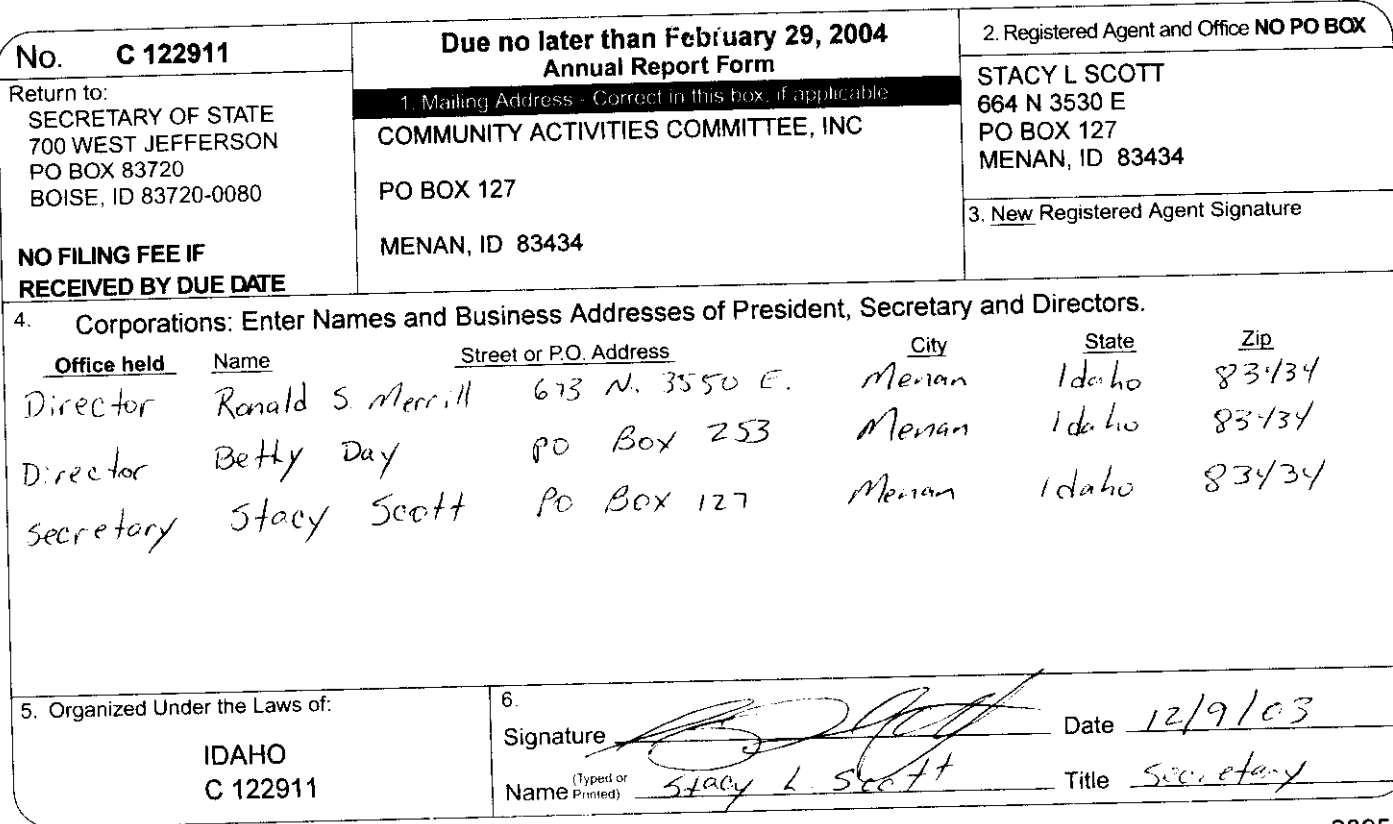 No. C 122911
Return to:
SECRETARY OF STATE
700 WEST JEFFERSON
PO BOX 83720
BOISE, ID 83720-0080
NO FILING FEE IF
RECEIVED BY DUE DATE
Due no later than February 29, 2004
Annual Report Form
1. Mailing Address - Correct in this box, if applicable
COMMUNITY ACTIVITIES COMMITTEE, INC
PO BOX 127
MENAN, ID 83434
2. Registered Agent and Office NO PO BOX
STACY L SCOTT
664 N 3530 E
PO BOX 127
MENAN, ID 83434
3. New Registered Agent Signature
4. Corporations: Enter Names and Business Addresses of President, Secretary and Directors.
Office held Name Street or P.O. Address City State Zip
Director Ronald S. Merrill 673 N. 3550 E. Menan Idaho 83434
Director Betty Day PO Box 253 Menan Idaho 83434
Secretary Stacy Scott Po Box 127 Menan Idaho 83434
5. Organized Under the Laws of:
IDAHO
C 122911
6.
Signature Date 12/9/03
Name (Typed or Printed) Stacy L. Scott Title Secretary